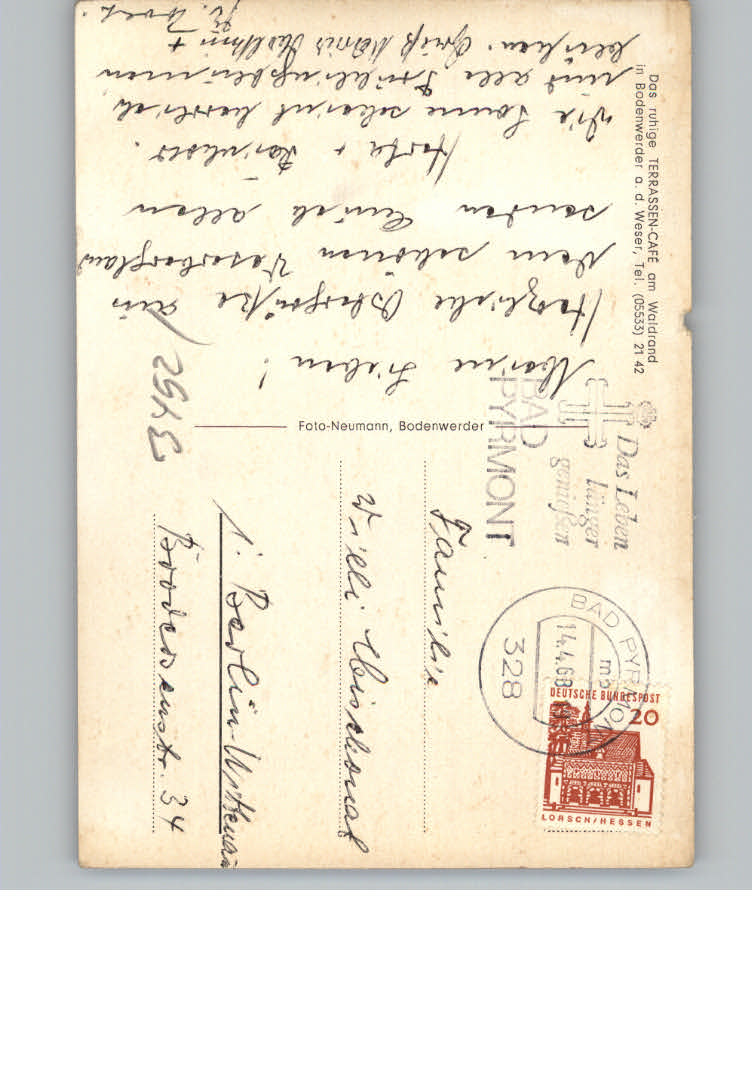 Meine Lieben!
Herzliche Ostergrüße aus
dem schönen Weserbergland
senden Euch allen
Herta + Reinhold.
Die Sonne scheint herrlich
und alle Frühlingsblumen
blühen. Gruß
Das ruhige TERRASSEN-CAFÉ am Waldrand
in Bodenwerder a. d. Weser, Tel. (05533) 21 42
Foto-Neumann, Bodenwerder
Das Leben
länger
genießen
BAD
PYRMONT
BAD PYRMONT
14.4.68
328
DEUTSCHE BUNDESPOST
20
LORSCH/HESSEN
Familie
Willi
1. Berlin-Wittenau
Brodersenstr. 34